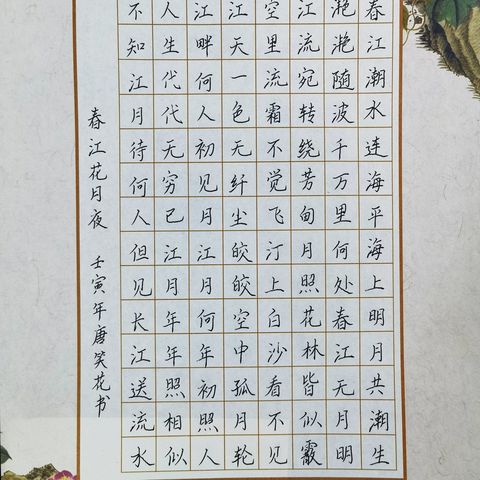 春江潮水连海平海上明月共潮生
滟滟随波千万里何处春江无月明
江流宛转绕芳甸月照花林皆似霰
空里流霜不觉飞汀上白沙看不见
江天一色无纤尘皎皎空中孤月轮
江畔何人初见月江月何年初照人
人生代代无穷已江月年年照相似
不知江月待何人但见长江送流水
春江花月夜 壬寅年唐笑花书